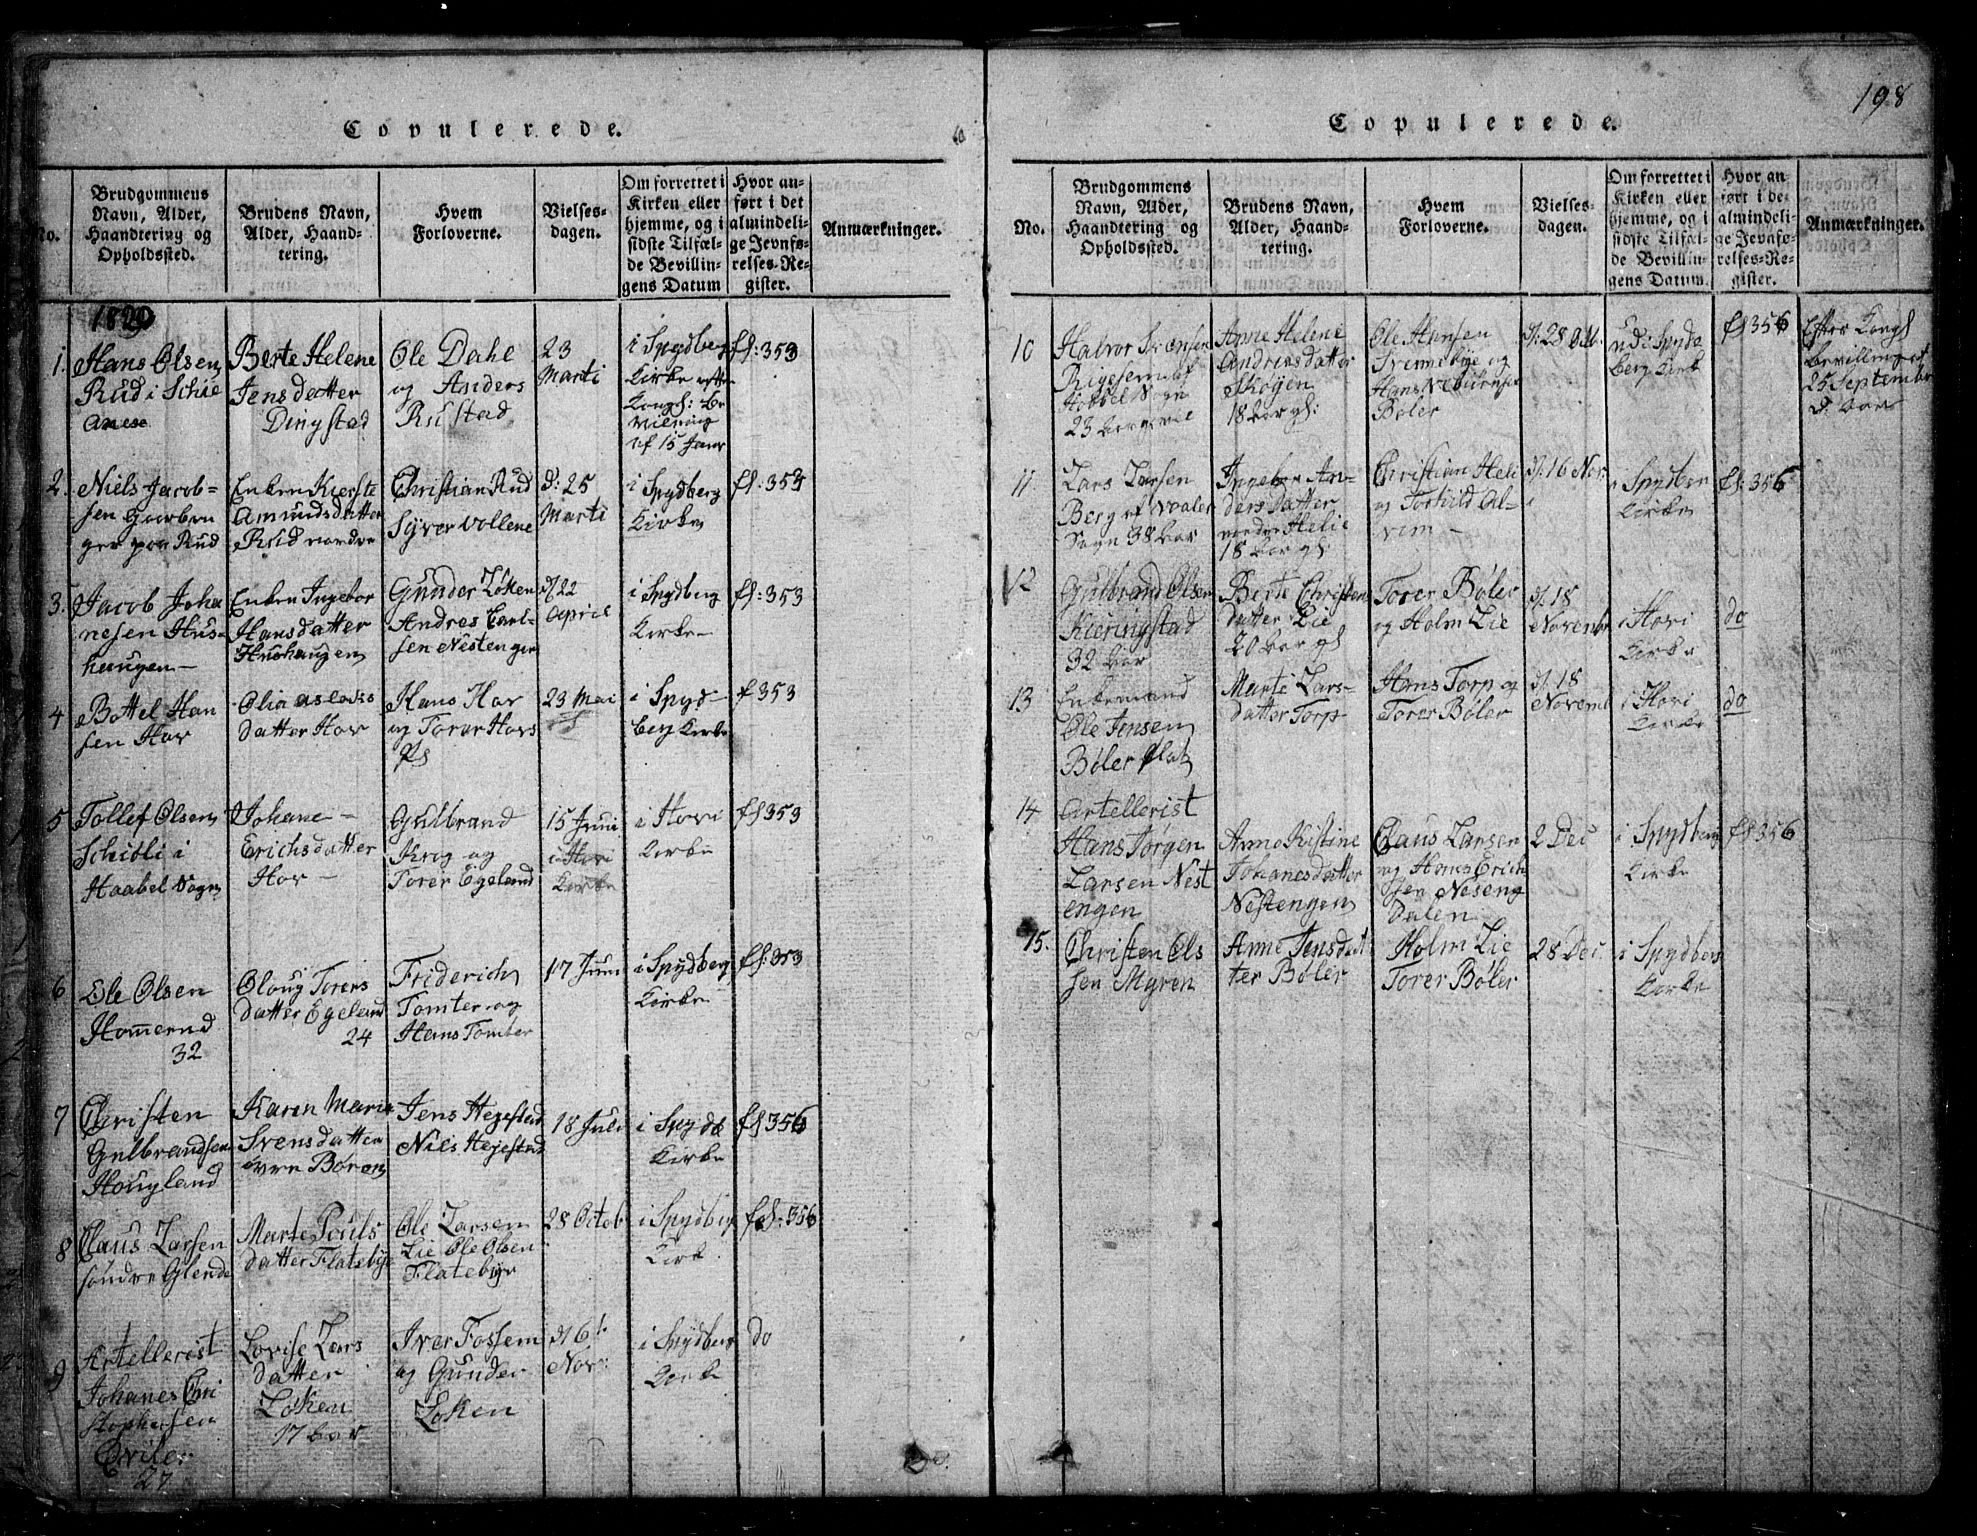 Copulerede.
No.
Brudgommens
Navn, Alder,
Haandtering og
Opholdssted.
Brudens Navn,
Alder, Haand-
tering.
Hvem
Forloverne.
Vielses-
dagen.
Om forrettet i
Kirken eller
hjemme, og i
sidste Tilfæl-
de Bevillin-
gens Datum
Hvor an-
ført i det
almindeli-
ge Jevnfø-
relses-Re-
gister.
Anmærkninger.
1820
1.
Hans Olsen
Rud i Schie
Berte Helene
Jensdatter
Dingstad
Ole Dahl
og Anders
Rustad
23
Marti
i Spydberg
Kirke efter
Kongl: Be
vilning
af 15 Janr
fl: 353
2.
Niels Jacob-
sen
paa Rud
Enken Kierste
Amundsdatter
Rud nordre
Christian Rud
Syver Vollene
d: 25
Marti
i Spydberg
Kirke
fl: 353
3.
Jacob Joha
nesen Hus-
haugen
Enken Ingebor
Hansdatter
Hushaugen
Gunder Løken
Andres Carl-
sen Nestengen
d 22
April
i Spydberg
Kirke
fl: 353
4
Bottel Han
sen Hov
Olia Aslaks
datter Hov
Hans Hov
og Torer Hovs
Pls
23 Mai
i Spyd-
berg Kirke
fl 353
5
Tollef Olsen
Schidli i
Haabel Sogn
Johane
Erichsdatter
Hov
Gulbrand
Krog og
Torer Egeland
15 Juni
i Hovi
Kirke
i Hovi
Kirke
fl 353
6
Ole Olsen
32
Oloug Torers
datter Egeland
24
Friderich
Tomter og
Hans Tomter
17 Juni
i Spydberg
Kirke
fl: 353
7
Christen
Gulbrandsen
Hougland
Karen Marie
Svensdatter
øvre Børen
Jens Hegestad
Niels Hegestad
18 Juli
i Spydb
Kirke
fl 356
8
Claus Larsen
søndre Glende
Marte Pouls
datter Flatebye
Ole Larsen
Lie Ole Olsen
Flatebye
28 Octob
i Spydberg
Kirke
fl: 356
9
Artellerist
Johanes Chri
stophersen
27
Lovise Lars
datter
Løken
17 Aar
Iver Fossem
og Gunder
Løken
d 6t
Nov:
i Spydberg
Kirke
do
198
Copulerede.
No.
Brudgommens
Navn, Alder,
Haandtering og
Opholdssted.
Brudens Navn,
Alder, Haand-
tering.
Hvem
Forloverne.
Vielses-
dagen.
Om forrettet i
Kirken eller
hjemme, og i
sidste Tilfæl-
de Bevillin-
gens Datum.
Hvor an
ført i de
almindeli-
ge Jevnfø-
relses-Re-
gister.
Anmærkninger.
10
Halvor Svensen
Hobbel Sogn
23 Aar
Anne Helene
Andreasdatter
Skøyen
18 Aar gl:
Ole Hansen
Svennebye og
Hans
Bøler
d: 28 Oct.
i Spyd
berg Kirk
fl 356
Efter Kongl
bevilling af
25 Septembr
d. Aar
11
Lars Larsen
Berg af Vaaler
Sogn 38 Aar
Ingebor An-
dersdatter
nedre Helie
18 Aar gl:
Christian Heli
og Torkild Al-
vim
d: 16 Nov.
i Spydber
Kirke
fl: 356
12
Gulbrand Olsen
Kieringstad
32 Aar
Berte Christen
datter Lie
20 Aar gl
Torer Bøler
og Holm Lie
d. 18
Novembr
i Hovi
Kirke
do
13
Enkemand
Ole Jensen
Bøler Plats
Marte Lars-
datter Torp
Hans Torp og
Torer Bøler
d. 18
Novemb
i Hovi
Kirke
do
14
Artellerist
Hans Jørgen
Larsen Nest
engen
Anne Kistine
Johanesdatter
Nestengen
Claus Larsen
og Hans Erich
sen Neseng
Dalen
2 Dec
i Spydberg
Kirke
fl 356
15.
Christen Ols
sen Myren
Anne Jensdat
ter Bøler
Holm Lie
Torer Bøler
28 Dec
i Spydberg
Kirke